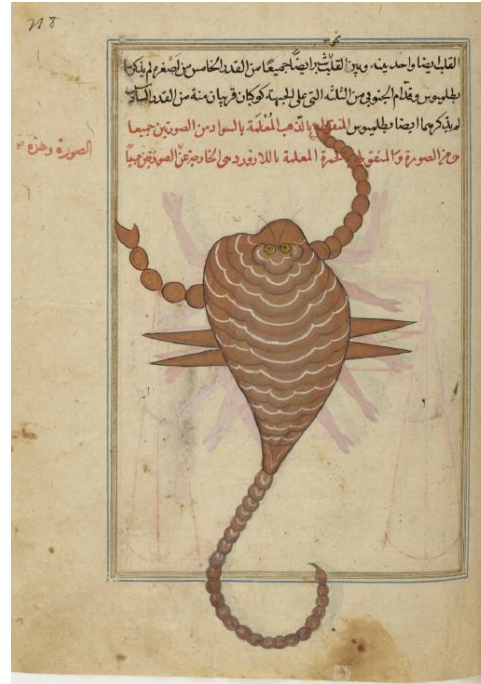 القلب ايضا واحد بينه وبين القلب ايضا جميعا من القدر الخامس من لم
بطلميوس وقدام الجنوبي من الثلثة التي على الجبهة كوكبان قريبان منه من القدر السادس
لم يذكرهما ايضا بطلميوس المنقوطة بالذهب المعلمة بالسواد من الصورتين جميعا
الصورة وهذه
من الصورة والمنقوطة بالحمرة المعلمة باللازورد هي الخارجة عن الصورتين جميعا